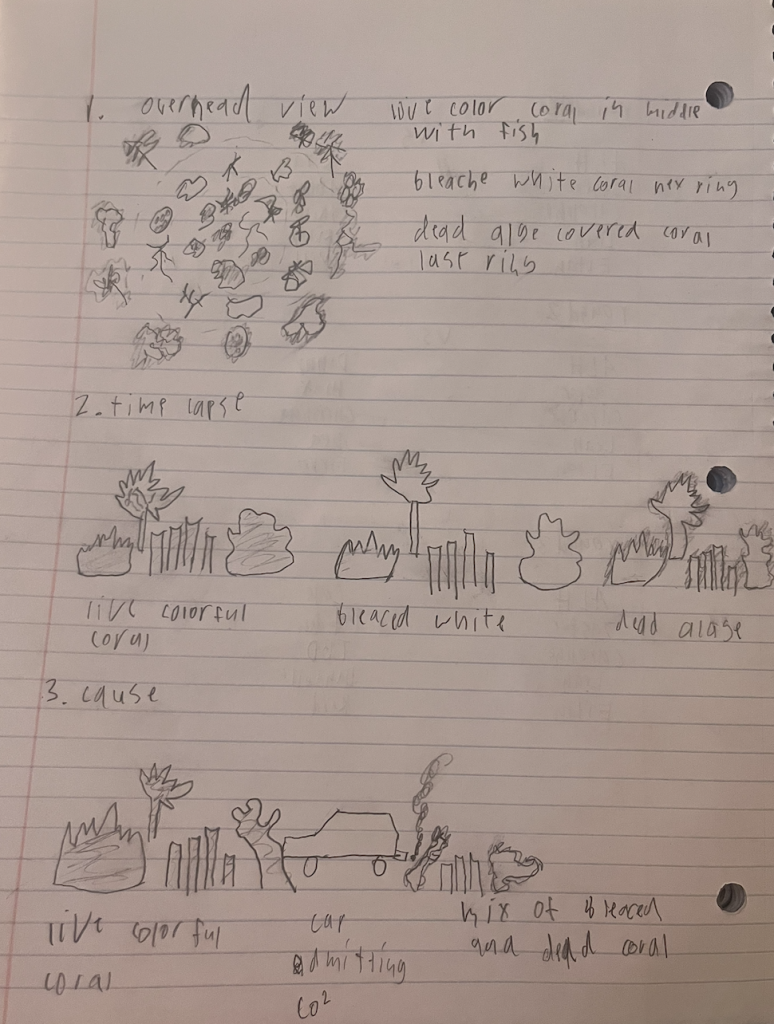 1. overhead view
live color coral in middle
with fish
bleache white coral nex ring
dead alge covered coral
last ring
2. time lapse
live colorful
coral
bleaced white
dead alage
3. cause
live colorful
coral
car
admitting
CO²
mix of bleaced
and dead coral